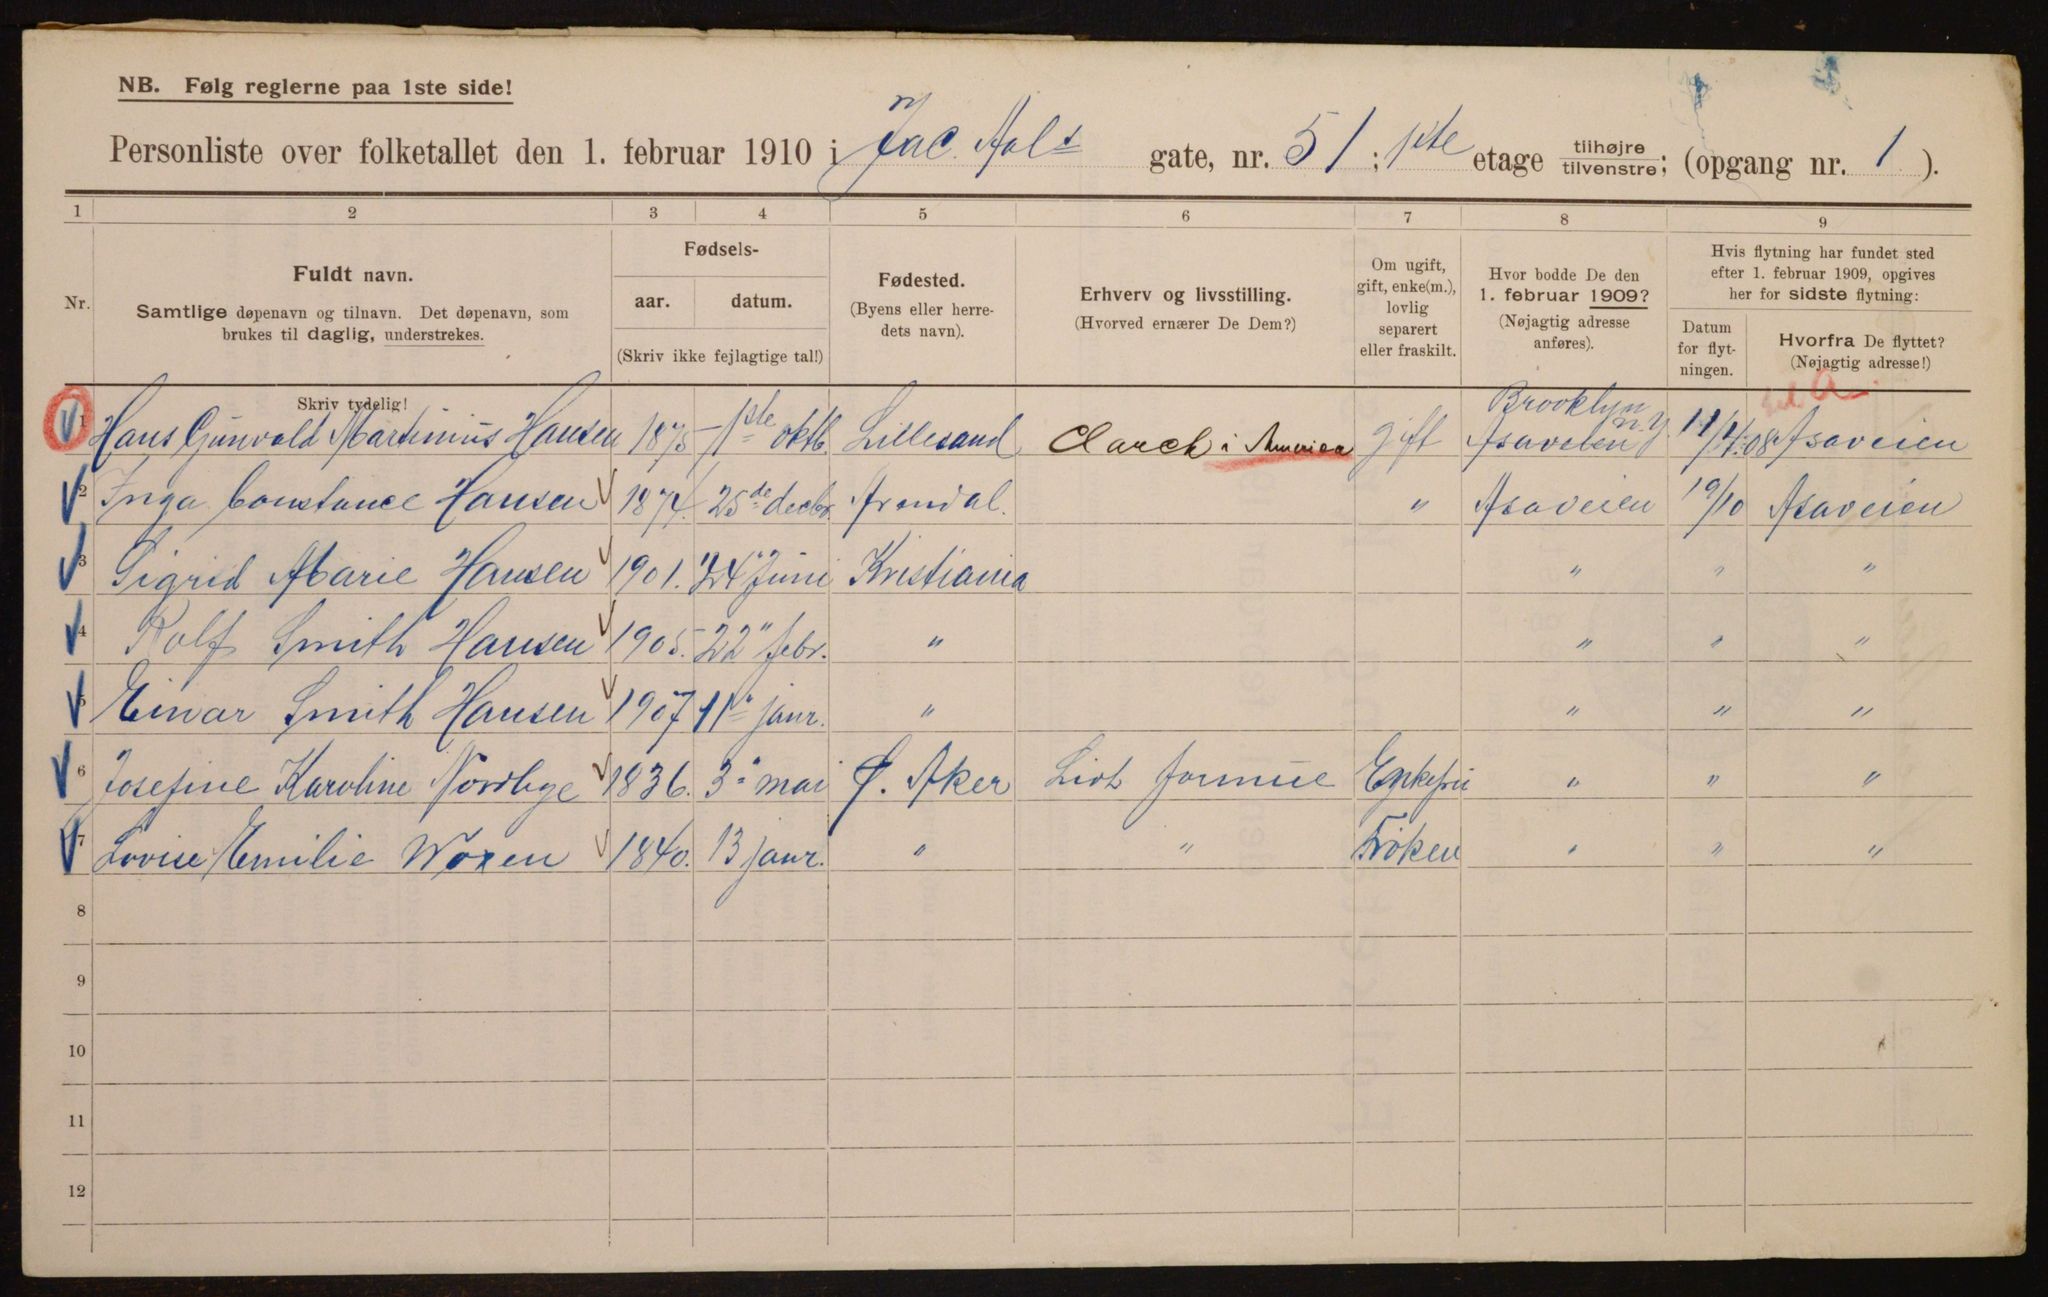 NB. Følg reglerne paa 1ste side!
Personliste over folketallet den 1. februar 1910 i Jac. Aals gate, nr. 51; 1ste etage tilhøjre / tilvenstre; (opgang nr. 1).
1 2 3 4 5 6 7 8 9
Nr.
Fuldt navn.
Samtlige døpenavn og tilnavn. Det døpenavn, som
brukes til daglig, understrekes.
Skriv tydelig!
Fødsels-
aar. datum.
(Skriv ikke fejlagtige tal!)
Fødested.
(Byens eller herre-
dets navn).
Erhverv og livsstilling.
(Hvorved ernærer De Dem?)
Om ugift,
gift, enke(m.),
lovlig
separert
eller fraskilt.
Hvor bodde De den
1. februar 1909?
(Nøjagtig adresse
anføres).
Hvis flytning har fundet sted
efter 1. februar 1909, opgives
her for sidste flytning:
Datum
for flyt-
ningen.
Hvorfra De flyttet?
(Nøjagtig adresse!)
1 Hans Gunvald Martinius Hansen 1875 1ste oktb. Lillesand Clarck i America gift Brooklyn N.Y. Asaveien 11/4.08 Asaveien
2 Inga Constance Hansen 1874. 25de decbr. Arendal. " Asaveien 19/10 Asaveien
3 Sigrid Marie Hansen 1901. 24" Juni Kristiania " " "
4 Rolf Smith Hansen 1905. 22" febr. " " " "
5 Einar Smith Hansen 1907 11" janr. " " " "
6 Josefine Karoline Nordbye 1836. 3" mai Ø. Aker Lidt formue Enkefru " " "
7 Lovise Emilie Woxen 1840. 13 janr. " " Frøken " " "
8
9
10
11
12